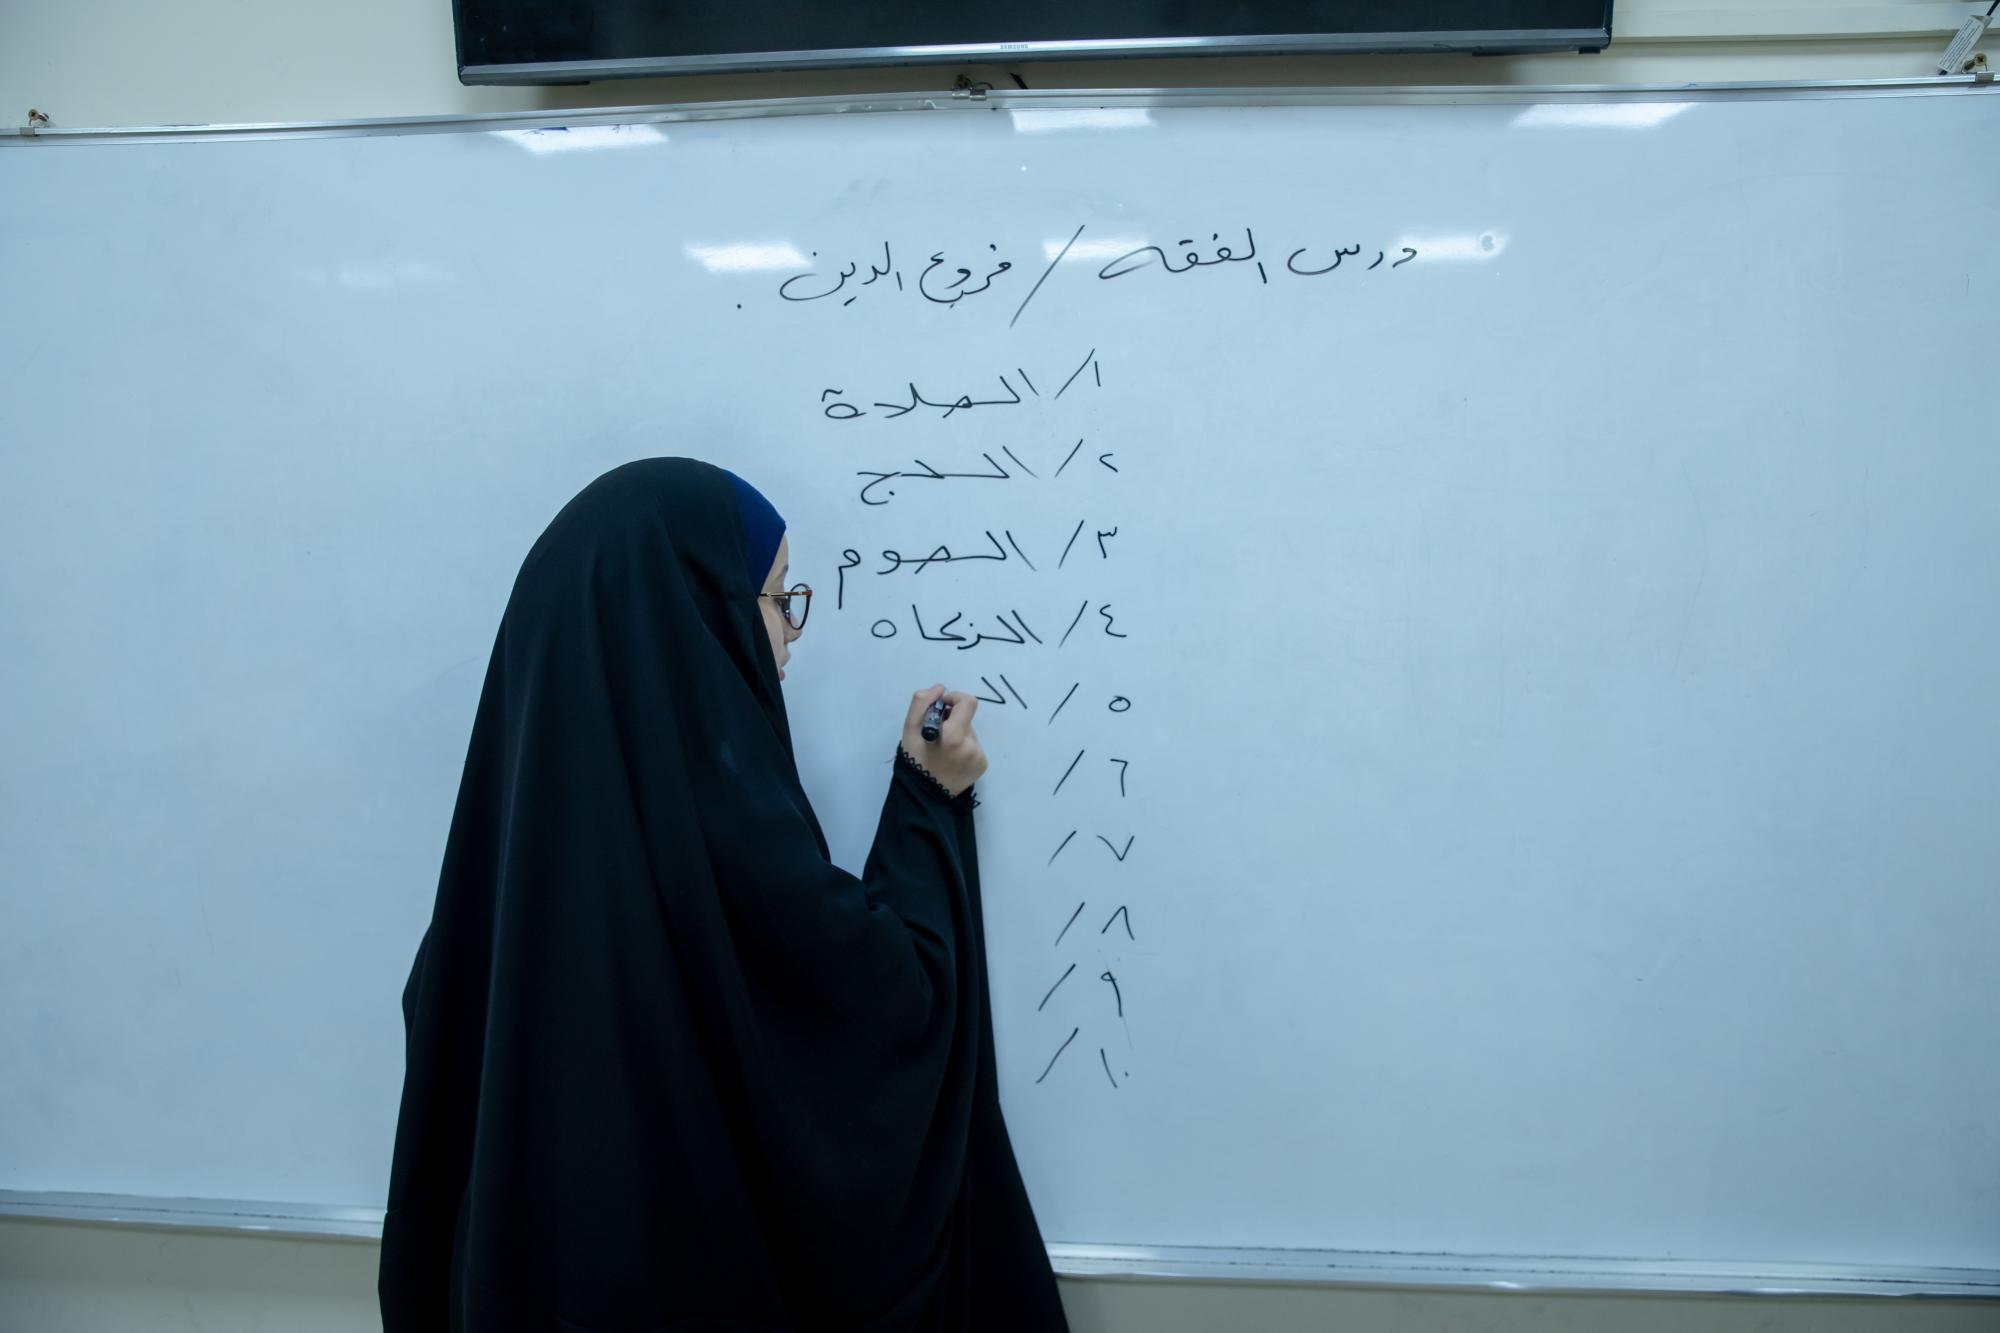 SAMSUNG
درس الفقه / فروع الدين .
١/ الصلاة
٢/ الحج
٣/ الصوم
٤/ الزكاه
٥/ الـ
٦/
٧/
٨/
٩/
١٠/